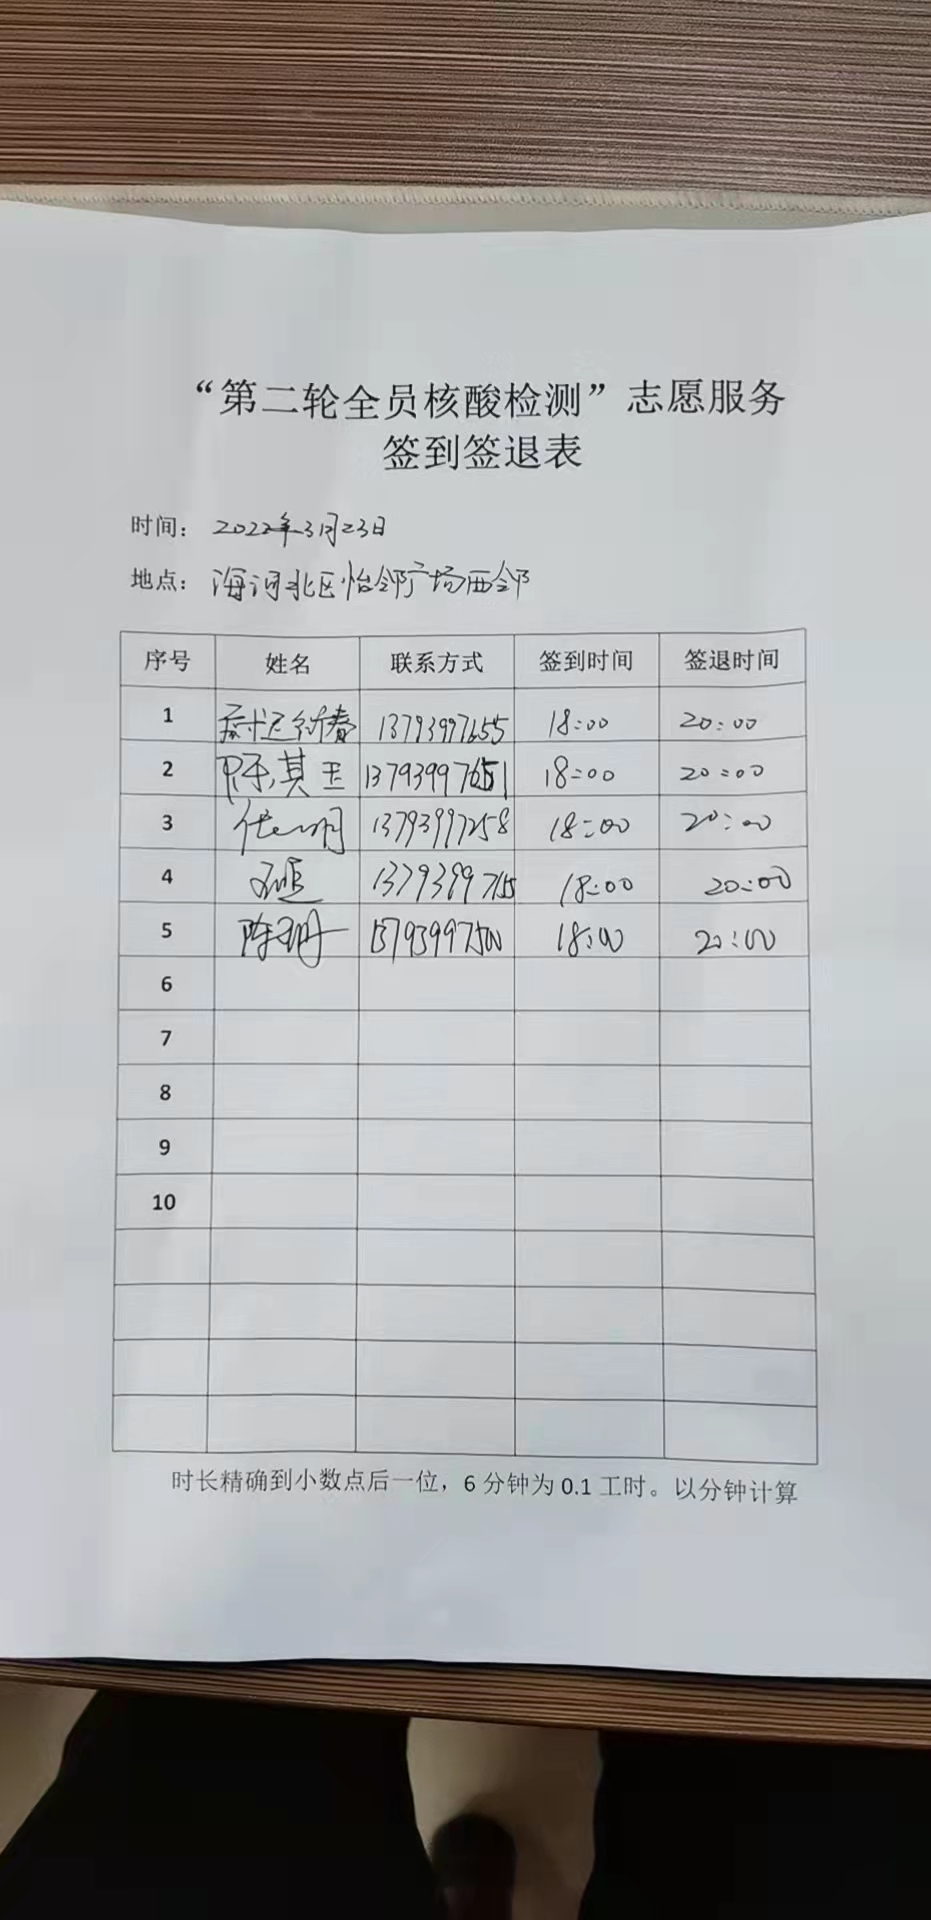 “第二轮全员核酸检测”志愿服务
签到签退表
时间：2022年3月23日
地点：海河北区怡邻广场西邻
序号 姓名 联系方式 签到时间 签退时间
1 尉迟新春 13793997655 18:00 20:00
2 陈其玉 13793997651 18:00 20:00
3 13793997258 18:00 20:00
4 18:00 20:00
5 陈珊 13793997500 18:00 20:00
6
7
8
9
10
时长精确到小数点后一位，6分钟为0.1工时。以分钟计算